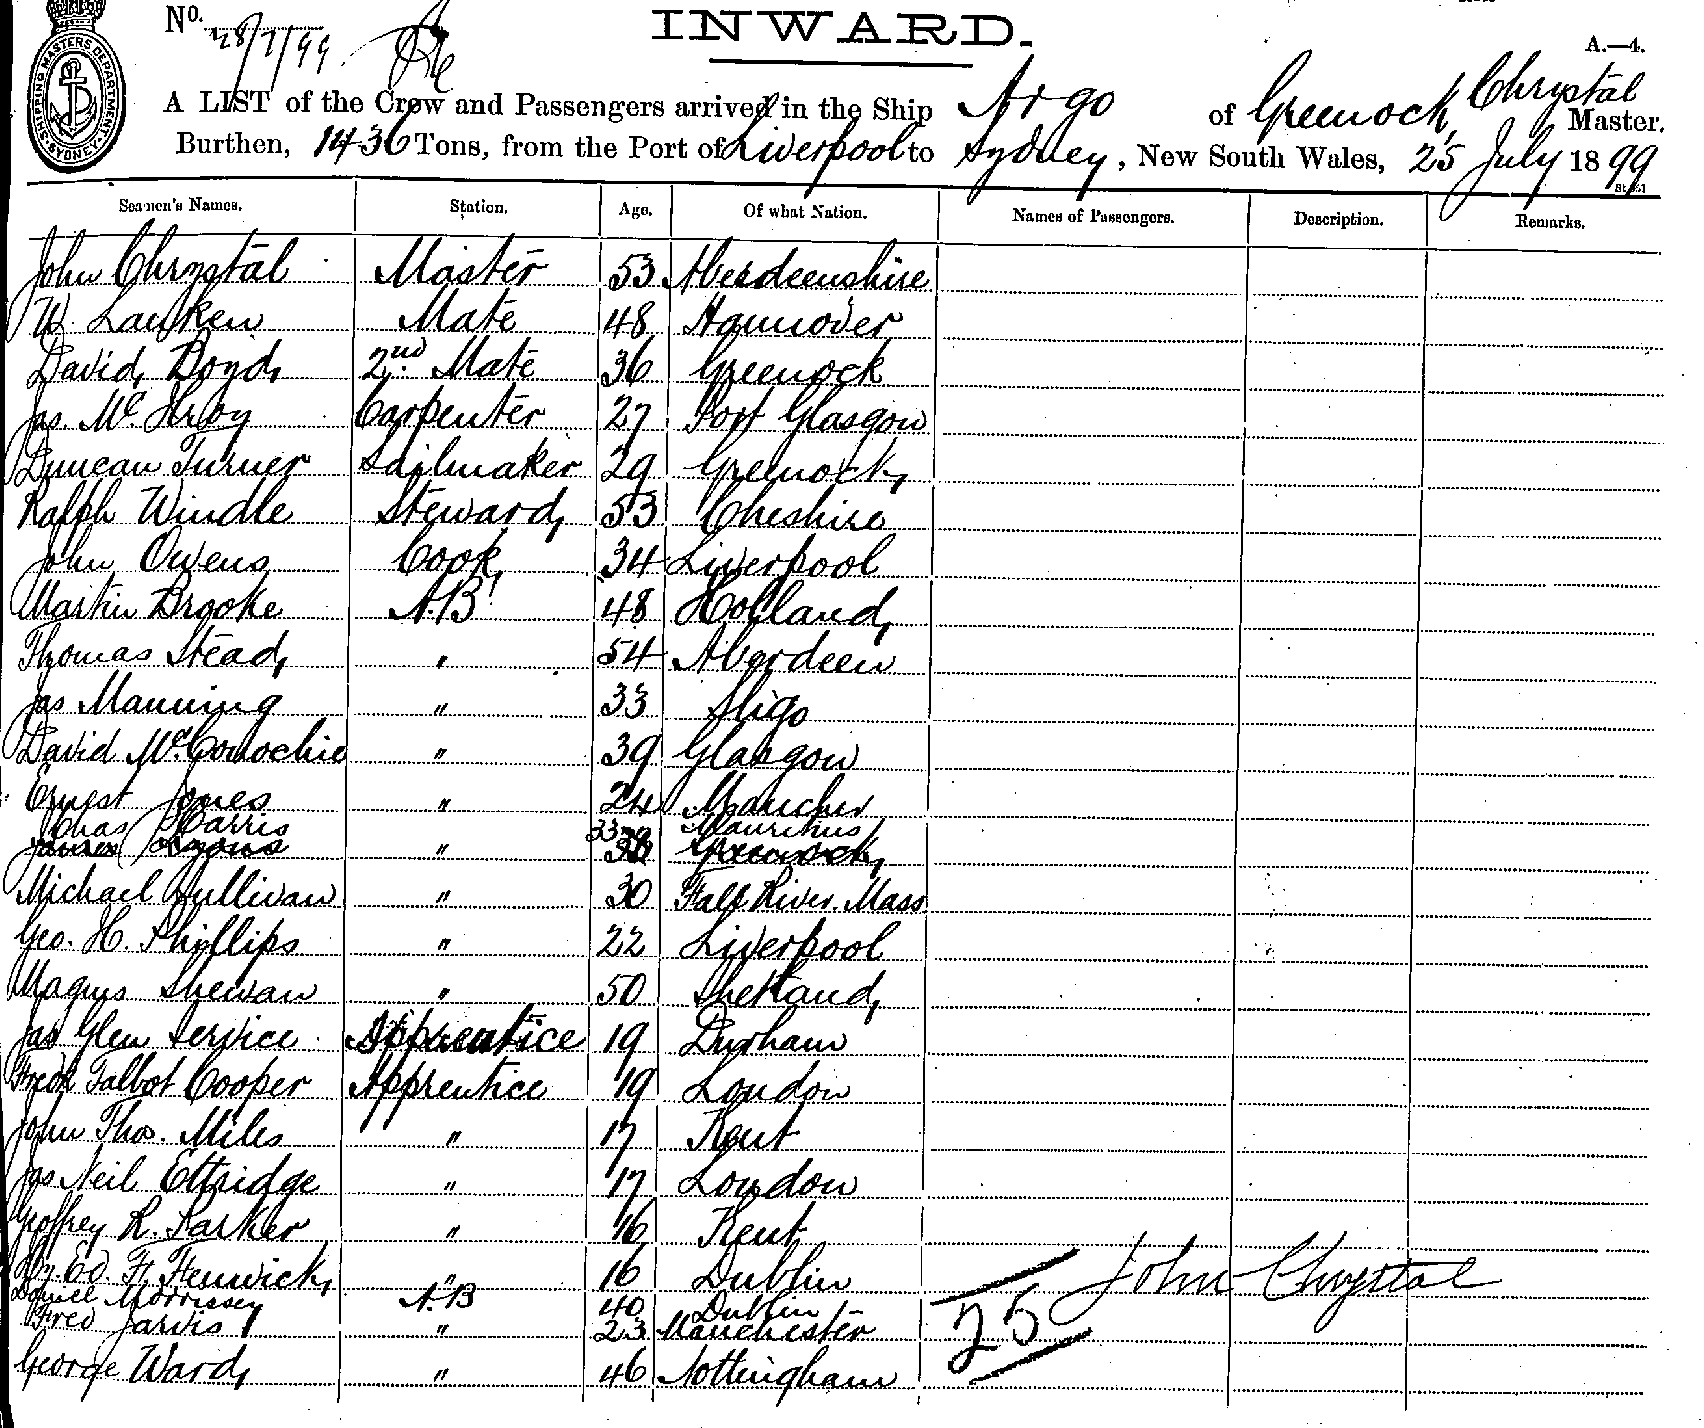 No. 28/7/99.
INWARD.
A.—4.
SHIPPING MASTERS DEPARTMENT SYDNEY
A LIST of the Crew and Passengers arrived in the Ship Argo of Greenock, Chrystal Master.
Burthen, 1436 Tons, from the Port of Liverpool to Sydney, New South Wales, 25 July 1899
Seamen's Names. Station. Age. Of what Nation. Names of Passengers. Description. Remarks.
John Chrystal Master 53 Aberdeenshire
W. Lauken Mate 48 Hannover
David Boyd 2nd Mate 36 Greenock
Jas. Mc Ilroy Carpenter 27 Port Glasgow
Duncan Turner Sailmaker 29 Greenock
Ralph Windle Steward 53 Cheshire
John Owens Cook 34 Liverpool
Martin Brooke A.B. 48 Holland
Thomas Stead " 54 Aberdeen
Jas Manning " 33 Sligo
David McConochie " 39 Glasgow
Ernest Jones " 24 Mancher
Chas Harris 33 Mauritius
James Lyons " 38 Greenock
Michael Sullivan " 30 Fall River. Mass
Geo. H. Phillips " 22 Liverpool
Magnus Shewan " 50 Shetland
Jas Glen Service Apprentice 19 Durham
Fredk Talbot Cooper Apprentice 19 London
John Thos. Miles " 17 Kent
Jas Neil Ettridge " 17 London
Geoffrey R. Parker " 16 Kent
Hy. Ed. F. Fenwick " 16 Dublin
Daniel Morrissey A.B 40 Dublin
Fred Jarvis " 23 Manchester
George Ward " 46 Nottingham
25
John Chrystal